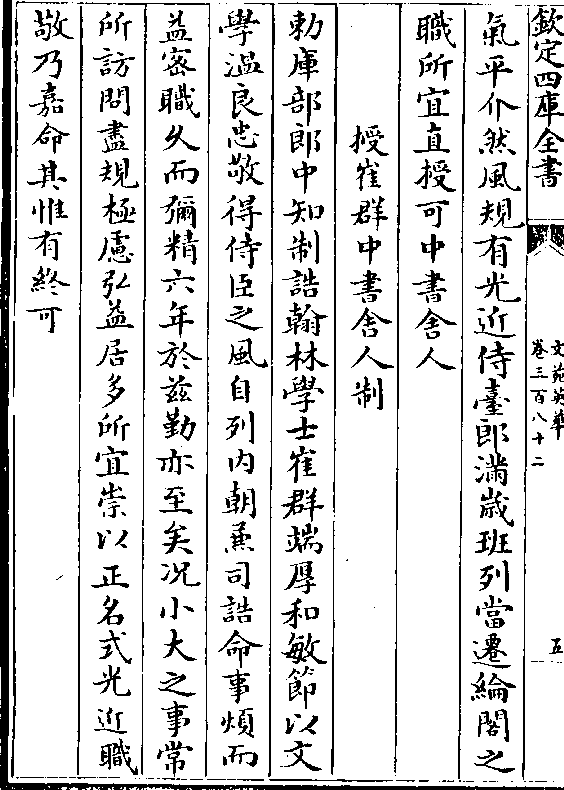 欽定四庫全書
文苑英華
卷三百八十二
五
氣平介然風規有光近侍臺郎滿歲班列當遷綸閣之
職所宜直授可中書舍人
授崔群中書舍人制
勅庫部郎中知制誥翰林學士崔群端厚和敏節以文
學溫良忠敬得侍臣之風自列內朝兼司誥命事煩而
益密職久而彌精六年於兹勤亦至矣况小大之事常
所訪問盡規極慮弘益居多所宜崇以正名式光近職
敬乃嘉命其惟有終可